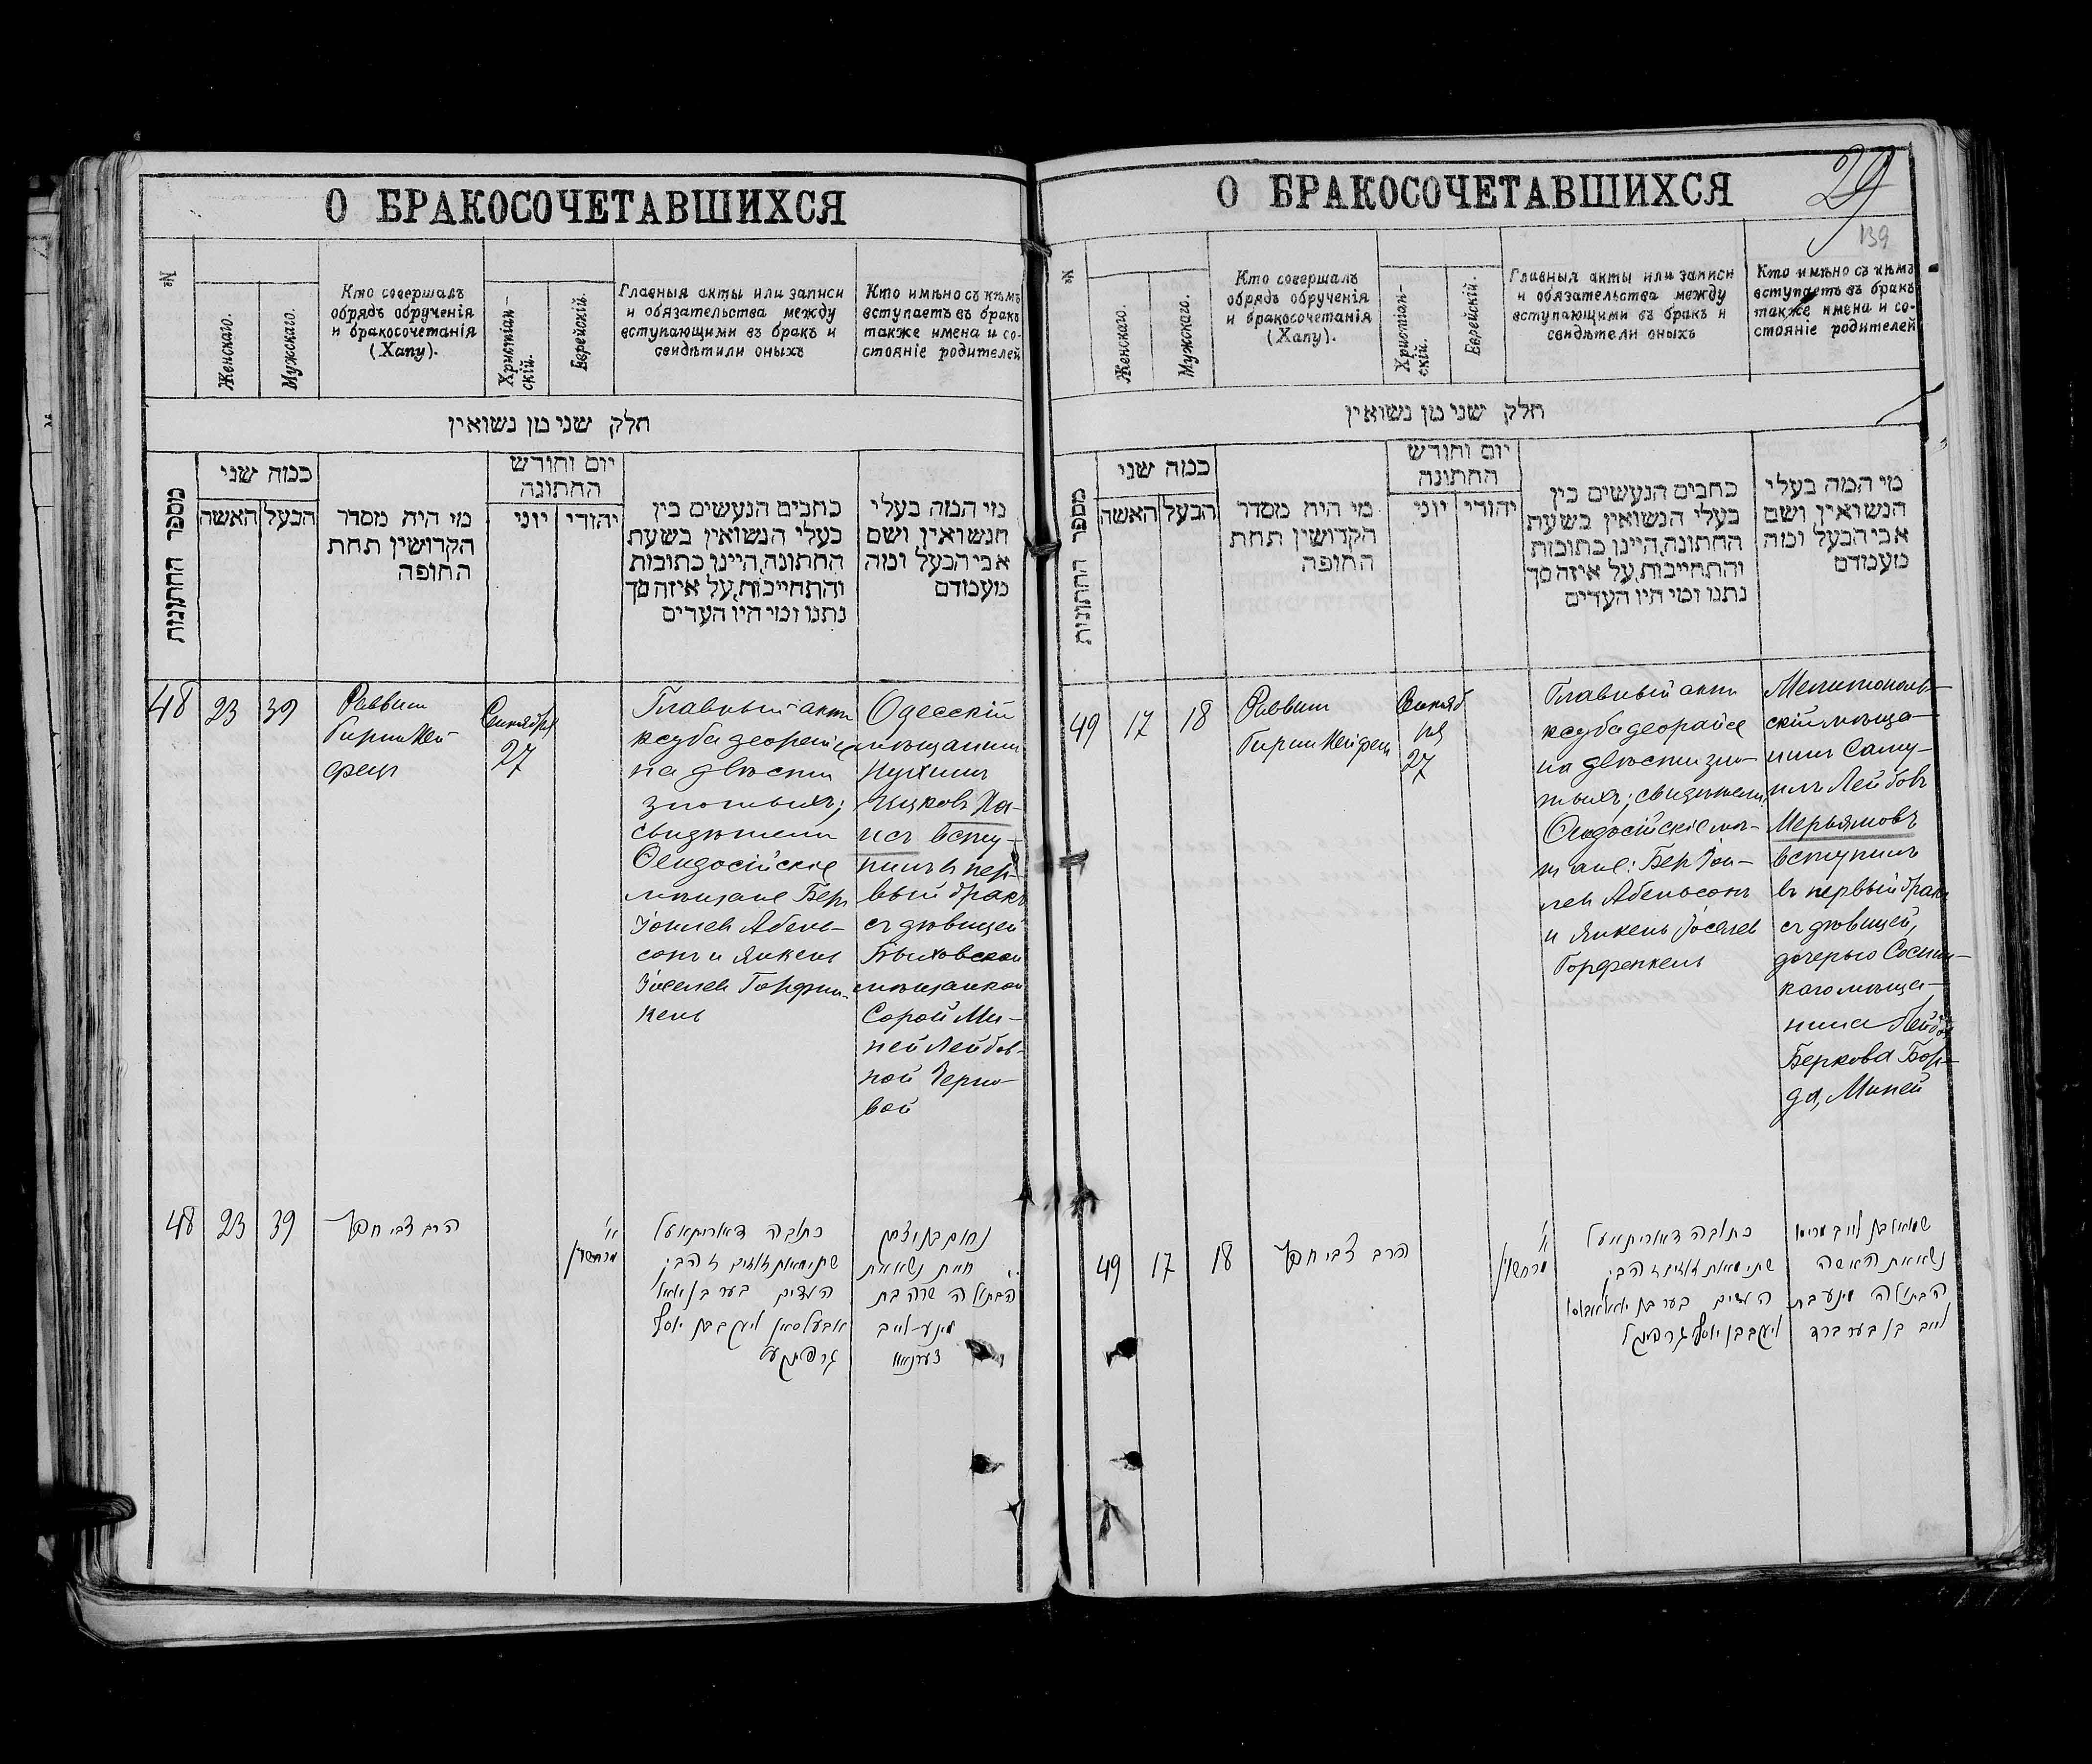 О БРАКОСОЧЕТАВШИХСЯ
№
Женскаго.
Мужскаго.
Кто совершалъ
обрядъ обрученія
и бракосочетанія
(Хапу).
Христіан-
скій.
Еврейскій.
Главныя акты или записи
и обязательства между
вступающими въ бракъ и
свидѣтили оныхъ
Кто имѣно съ кѣмъ
вступаетъ въ бракъ
также имена и со-
стояніе родителей
חלק שני מן נשואין
מספר החתונות
כמה שני
האשה
הבעל
מי היה מסדר
הקדושין תחת
החופה
יום וחודש
החתונה
יוני
יהודי
כתבים הנעשים בין
בעלי הנשואין בשעת
החתונה, היינו כתובות
והתחייבות, על איזה סך
נתנו ומי היו העדים
מי המה בעלי
הנשואין ושם
אבי הבעל ומה
מעמדם
48
23
39
Раввин
Гирш Хей
фецъ
Сентября
27
Главный актъ
ксуба деорайса
на двѣсти
злотыхъ;
свидѣтели
Ѳеодосійскіе
мѣщане Беръ
Іоилев Абель-
сонъ и Янкель
Іоселев Горфин-
кель
Одесскій
мѣщанинъ
Нухимъ
Ицковъ Ха-
исъ всту-
пилъ в пер-
вый бракъ
съ дѣвицей
Быховской
мѣщанкой
Сорой Ми-
ней Лейбов-
ной Черно-
вой
48
23
39
הרב צבי חפץ
א'
מרחשון
כתובה דאוריתא על
שתי מאות זוזים זהבים
העדים בער בן יואל
אבעלסאן ויעקב בן יוסף
גרפינקעל
נחום בן יצחק
חיית נשא את
הבתולה שרה בת
מינע לייב
О БРАКОСОЧЕТАВШИХСЯ
29
139
№
Женскаго.
Мужскаго.
Кто совершалъ
обрядъ обрученія
и бракосочетанія
(Хапу).
Христіан-
скій.
Еврейскій.
Главныя акты или записи
и обязательства между
вступающими въ бракъ и
свидѣтели оныхъ
Кто имѣно съ кѣмъ
вступаетъ въ бракъ
также имена и со-
стояніе родителей
חלק שני מן נשואין
מספר החתונות
כמה שני
האשה
הבעל
מי היה מסדר
הקדושין תחת
החופה
יום וחודש
החתונה
יוני
יהודי
כתבים הנעשים בין
בעלי הנשואין בשעת
החתונה, היינו כתובות
והתחייבות, על איזה סך
נתנו ומי היו העדים
מי המה בעלי
הנשואין ושם
אבי הבעל ומה
מעמדם
49
17
18
Раввин
Гирш Хейфец
Сентяб
ря
27
Главный актъ
ксуба деорайса
на двѣсти зло-
тыхъ; свидѣтели
Ѳеодосійскіе мѣ-
щане: Бер Іои-
лев Абельсонъ
и Янкель Іоселев
Горфенкель
Мелитополь-
скій мѣща-
нинъ Саму-
илъ Лейбовъ
Мерьямовъ
вступилъ
въ первый бракъ
съ дѣвицей,
дочерью Сосниц-
каго мѣща-
нина Лейбы
Беркова Бор-
да, Миней
49
17
18
הרב צבי חפץ
א'
מרחשון
כתובה דאוריתא על
שתי מאות זוזים זהבים
העדים בער בן יואל אבאלסאן
ויעקב בן יוסף גרפינקל
נשא את האשה
הבתולה מינע בת
לייב בן בער ברד